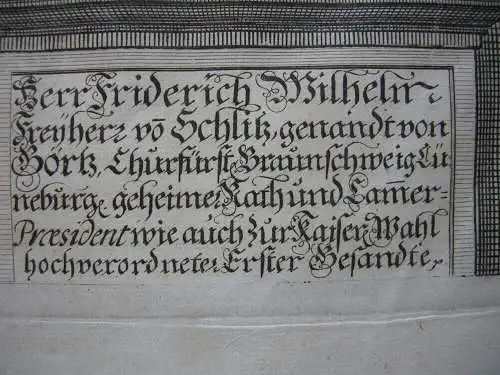 Herr Friderich Wilhelm
Freÿherr võ Schlitz, genandt von
Görtz, Churfürst. Braunschweig Lü-
neburg. geheimer Rath und Cam̃er-
Præsident wie auch zur Kaiser Wahl
hochverordneter Erster Gesandter